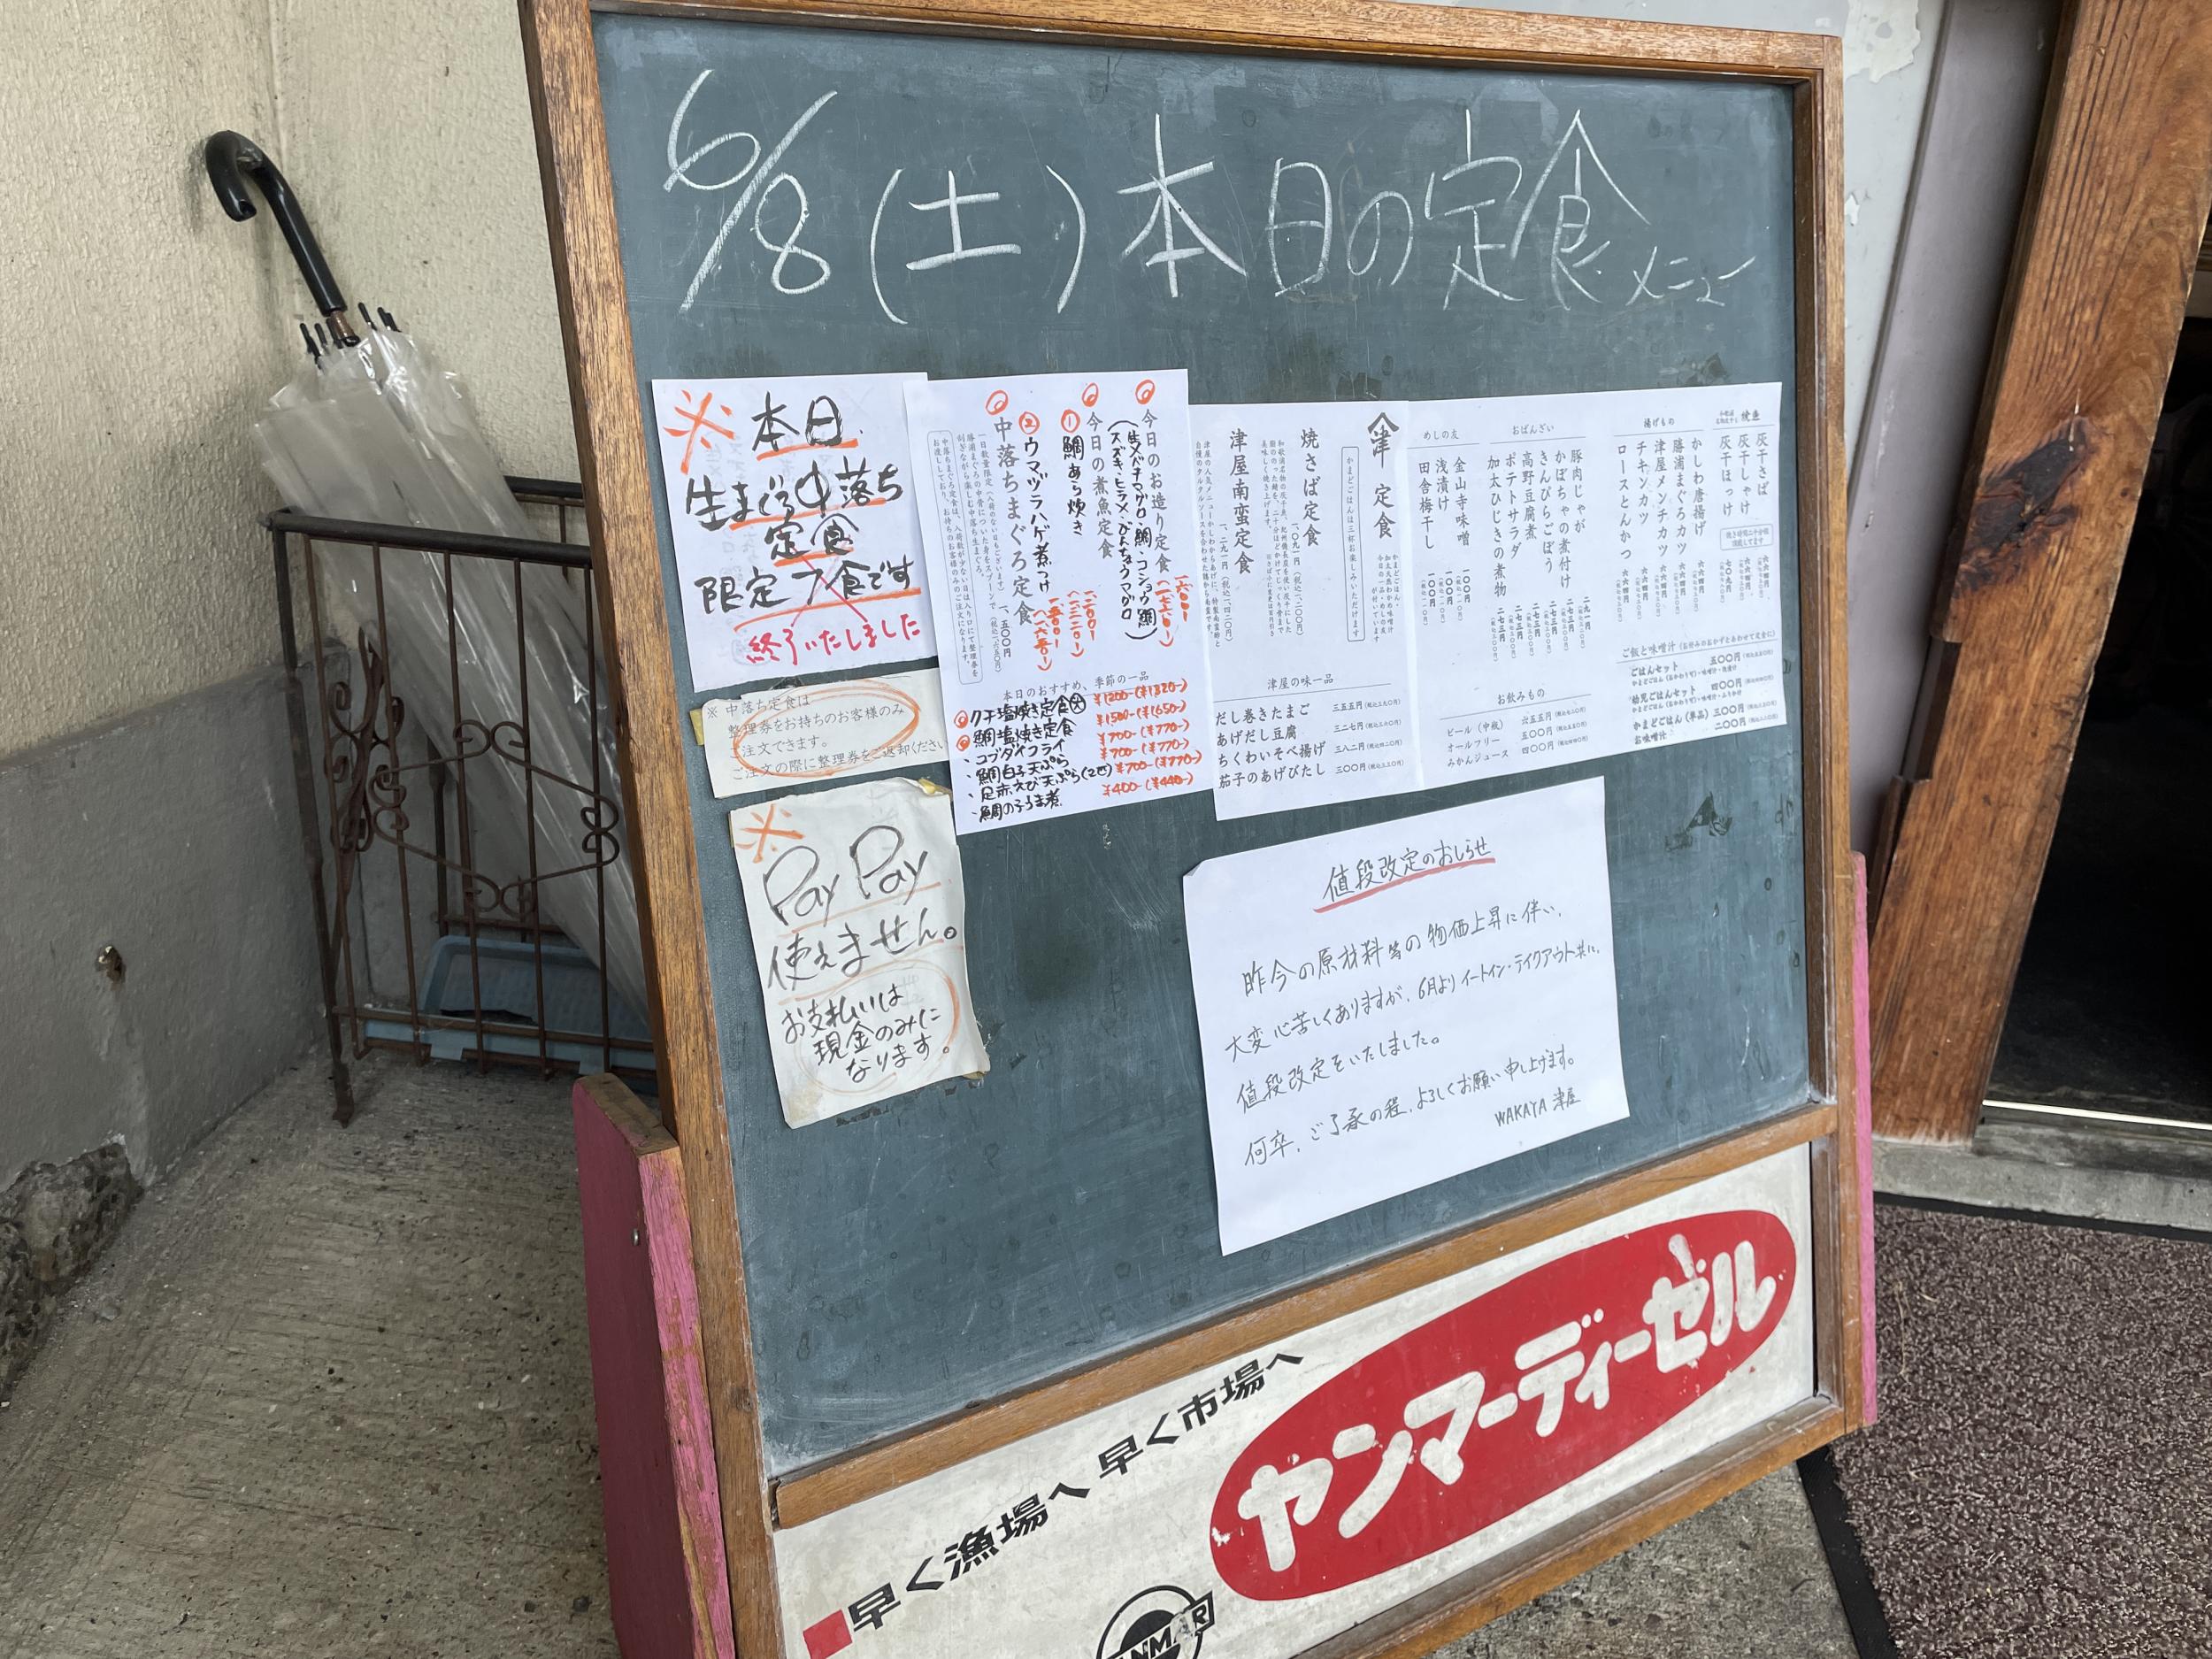 6/8(土)本日の定食メニュー
※本日
生まぐろ中落ち
定食
限定7食です
終了いたしました
※中落ち定食は
整理券をお持ちのお客様のみ
ご注文できます。
ご注文の際に整理券をご返却ください
※
PayPay
使えません。
お支払いは
現金のみに
なります。
今日のお造り定食
今日の煮魚定食
①鯛あら炊き
②ウマヅラハゲ煮つけ
中落ちまぐろ定食 一、五〇〇円
季節の一品
本日のおすすめ
鯛塩焼き定食 ¥1500-(¥1650-)
・コブダイフライ ¥700-(¥770-)
・鯛白子天ぷら ¥700-(¥770-)
・足赤えび天ぷら(2匹) ¥700-(¥770-)
・鯛の子うま煮 ¥400-(¥440-)
津 定食
かまどごはんは三杯お楽しみいただけます
焼さば定食 一、〇九一円(税込一、二〇〇円)
津屋南蛮定食 一、二九一円(税込一、四二〇円)
津屋の味一品
だし巻きたまご 三五五円(税込三九〇円)
あげだし豆腐 三二七円(税込三六〇円)
ちくわいそべ揚げ 三八二円(税込四二〇円)
茄子のあげびたし 三〇〇円(税込三三〇円)
焼魚
灰干さば 六六四円
灰干しゃけ 六六四円
灰干ほっけ 七〇九円
揚げもの
かしわ唐揚げ 六六四円
勝浦まぐろカツ 六六四円
津屋メンチカツ 六六四円
チキンカツ 六六四円
ロースとんかつ 六六四円
おばんざい
豚肉じゃが 二九一円
かぼちゃの煮付け 二七三円
きんぴらごぼう 二七三円
高野豆腐煮 二七三円
ポテトサラダ 二七三円
加太ひじきの煮物 二七三円
めしの友
金山寺味噌 一〇〇円
浅漬け 一〇〇円
田舎梅干し 一〇〇円
ご飯と味噌汁
ごはんセット 五〇〇円
幼児ごはんセット 四〇〇円
かまどごはん(単品) 三〇〇円
お味噌汁 二〇〇円
お飲みもの
ビール(中瓶) 六五五円
オールフリー 五〇〇円
みかんジュース 四〇〇円
値段改定のおしらせ
昨今の原材料等の物価上昇に伴い、
大変心苦しくありますが、6月よりイートイン・テイクアウト共に、
値段改定をいたしました。
何卒、ご了承の程、よろしくお願い申し上げます。
WAKAYA 津屋
早く漁場へ 早く市場へ
ヤンマーディーゼル